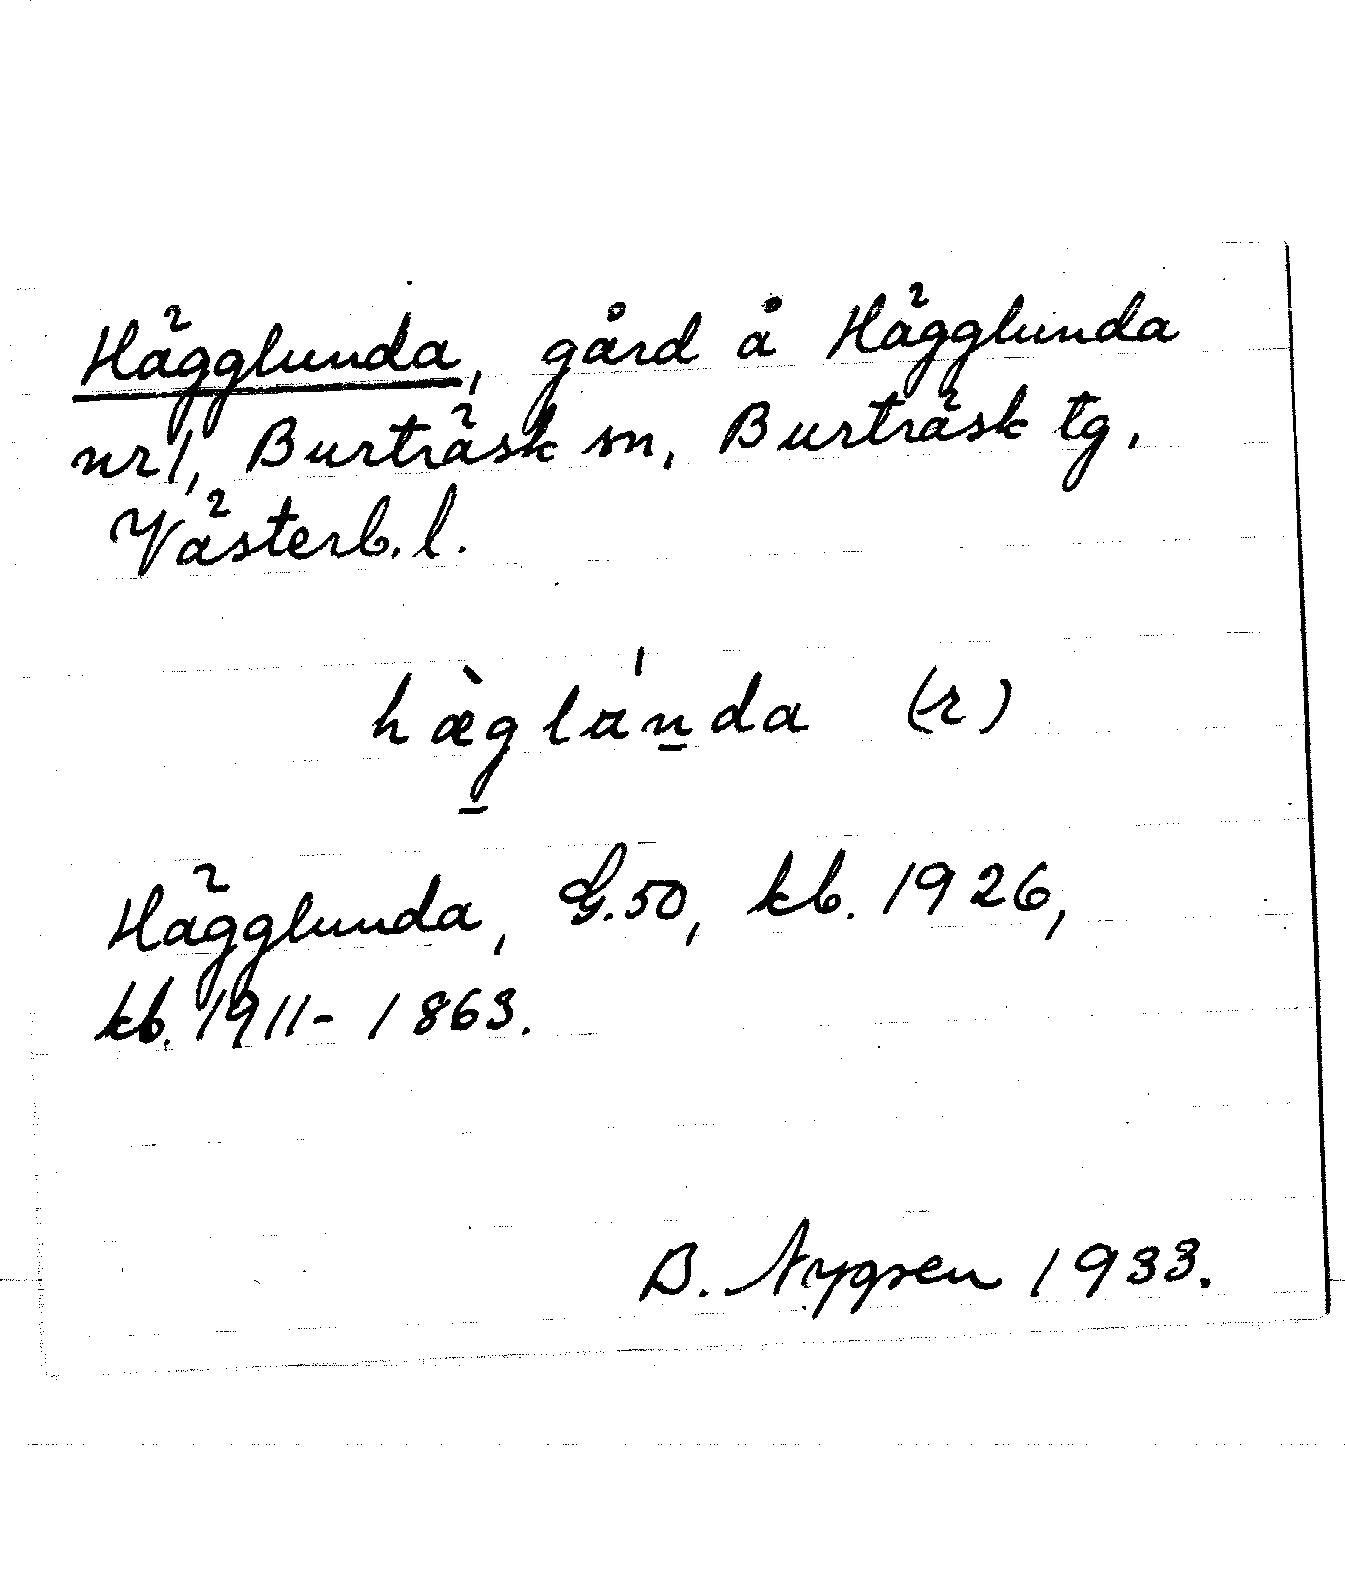 Hägglunda, gård å Hägglunda
nr 1, Burträsk sn, Burträsk tg.
Västerb. l.
hæ̀g̱lúṉda (-r)
Hägglunda, G.50, kb. 1926,
kb. 1911-1863.
B. Nygren 1933.